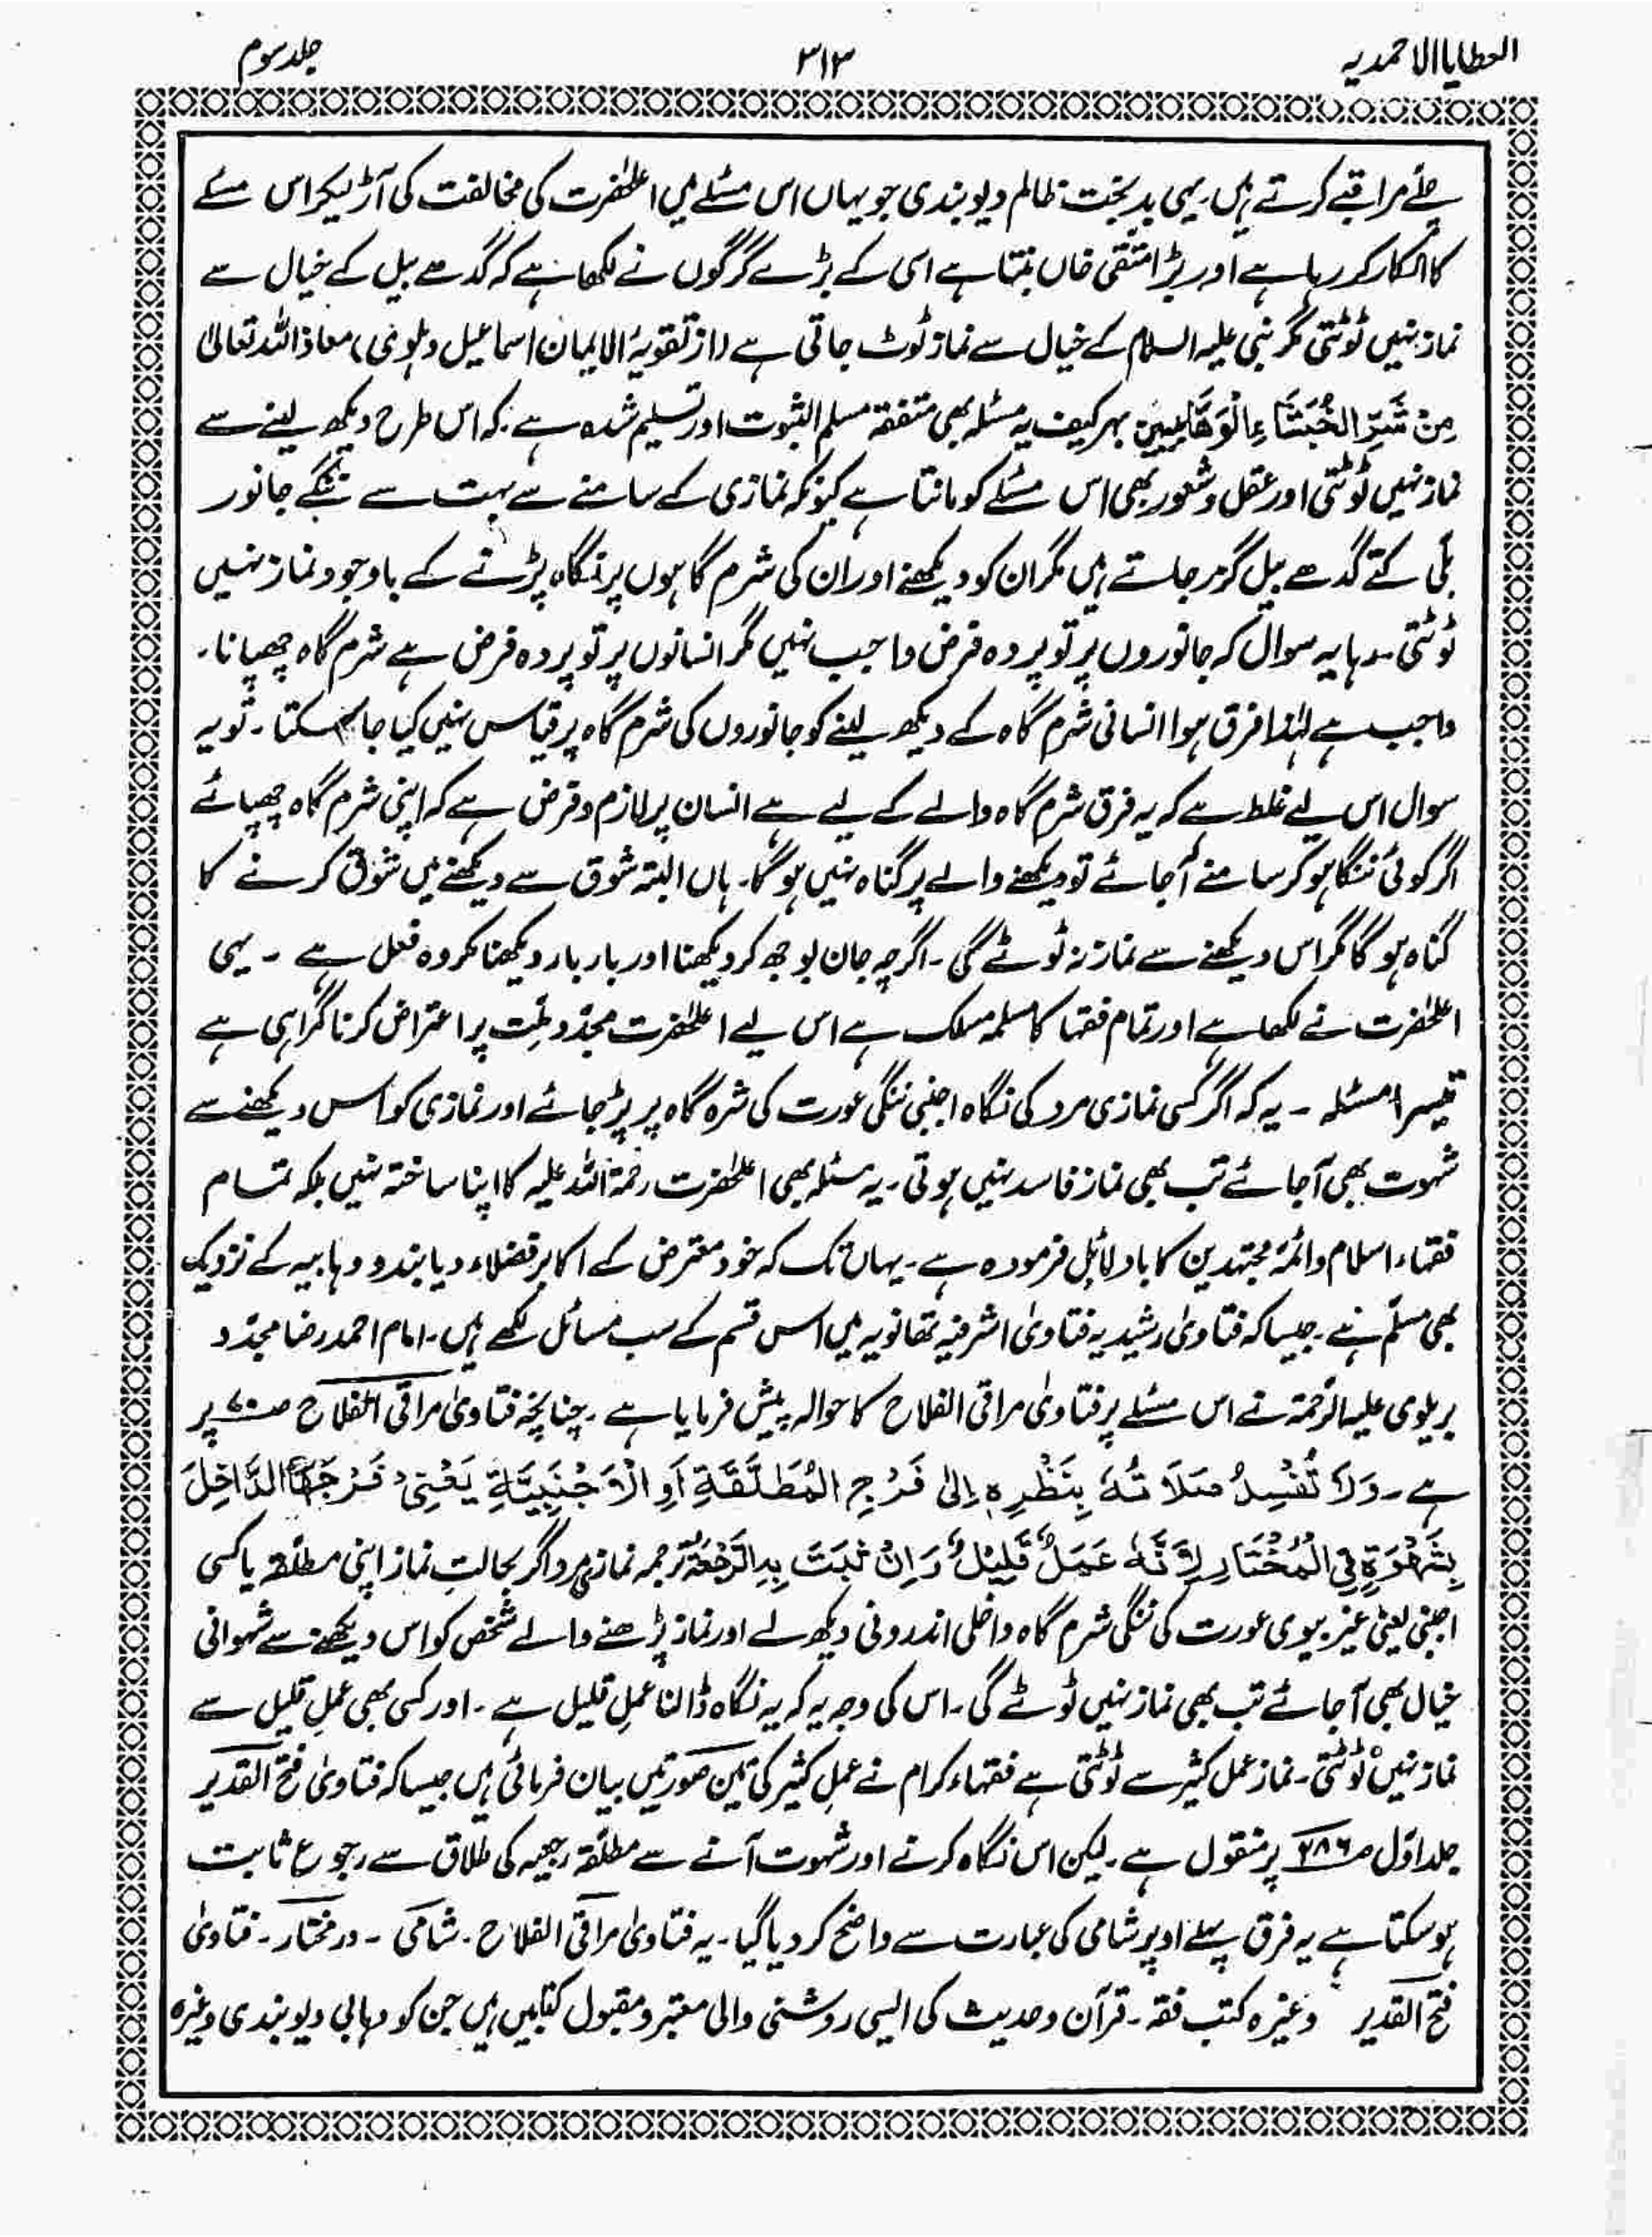 العطایا الاحمدیہ ۳۱۳ جلد سوم
چلّے مراقبے کرتے ہیں۔ یہی بدبخت ظالم دیوبندی جو یہاں اس مسئلے میں اعلٰحضرت کی مخالفت کی آڑ لیکر اس مسئلے
کا انکار کر رہا ہے اور بڑا متقی خاں بنتا ہے اسی کے بڑے گرگوں نے لکھا ہے کہ گدھے بیل کے خیال سے
نماز نہیں ٹوٹتی مگر نبی علیہ السلام کے خیال سے نماز ٹوٹ جاتی ہے (از تقویۃ الایمان اسماعیل دہلوی) معاذ اللہ تعالیٰ
مِنْ شَرِّ الخُبَثَاءِ الْوَهَّابِيِيْنَ بہر کیف یہ مسئلہ بھی متفقہ مسلم الثبوت اور تسلیم شدہ ہے۔ کہ اس طرح دیکھ لینے سے
نماز نہیں ٹوٹتی اور عقل و شعور بھی اس مسئلے کو مانتا ہے کیونکہ نمازی کے سامنے سے بہت سے ننگے جانور
بلّی کتے گدھے بیل گزر جاتے ہیں مگر ان کو دیکھنے اور ان کی شرم گاہوں پر نگاہ پڑنے کے باوجود نماز نہیں
ٹوٹتی۔ رہا یہ سوال کہ جانوروں پر تو پردہ فرض واجب نہیں مگر انسانوں پر تو پردہ فرض ہے شرم گاہ چھپانا۔
واجب ہے لہٰذا فرق ہوا انسانی شرم گاہ کے دیکھ لینے کو جانوروں کی شرم گاہ پر قیاس نہیں کیا جا سکتا۔ تو یہ
سوال اس لیے غلط ہے کہ یہ فرق شرم گاہ والے کے لیے ہے انسان پر لازم و فرض ہے کہ اپنی شرم گاہ چھپائے
اگر کوئی ننگا ہو کر سامنے آ جائے تو دیکھنے والے پر گناہ نہیں ہو گا۔ ہاں البتہ شوق سے دیکھنے میں شوق کرنے کا
گناہ ہو گا مگر اس دیکھنے سے نماز نہ ٹوٹے گی۔ اگرچہ جان بوجھ کر دیکھنا اور بار بار دیکھنا مکروہ فعل ہے ۔ یہی
اعلٰحضرت نے لکھا ہے اور تمام فقہا کا مسلمہ مسلک ہے اس لیے اعلٰحضرت مجدّد ملّت پر اعتراض کرنا گمراہی ہے
تیسرا مسئلہ ۔ یہ کہ اگر کسی نمازی مرد کی نگاہ اجنبی ننگی عورت کی شرہ گاہ پر پڑ جائے اور نمازی کو اس دیکھنے سے
شہوت بھی آ جائے تب بھی نماز فاسد نہیں ہوتی۔ یہ مسئلہ بھی اعلٰحضرت رحمۃ اللہ علیہ کا اپنا ساختہ نہیں بلکہ تمام
فقہاء اسلام و ائمۂ مجتہدین کا با دلائل فرمودہ ہے۔ یہاں تک کہ خود معترض کے اکابر فضلاء دیابند و وہابیہ کے نزدیک
بھی مسلّم ہے۔ جیسا کہ فتاویٰ رشیدیہ فتاویٰ اشرفیہ تھانویہ میں اس قسم کے سب مسائل لکھے ہیں۔ امام احمد رضا مجدّد
بریلوی علیہ الرحمۃ نے اس مسئلے پر فتاویٰ مراقی الفلاح کا حوالہ پیش فرمایا ہے۔ چنانچہ فتاویٰ مراقی الفلاح صـ پر
ہے۔ وَلَا تُفْسِدُ صَلَاتُهٗ بِنَظْرِهٖ اِلٰی فَرْجِ الْمُطَلَّقَةِ اَوِ الْاَجْنَبِيَّةِ يَعْنِیْ فَرْجَهَا الدَّاخِلَ
بِشَهْوَةٍ فِی الْمُخْتَارِ لِاَنَّهٗ عَمَلٌ قَلِيْلٌ وَ اِنْ ثَبَتَ بِهِ الرَّجْعَةُ ترجمہ نمازی مرد اگر بحالتِ نماز اپنی مطلّقہ یا کسی
اجنبی یعنی غیر بیوی عورت کی ننگی شرم گاہ داخلی اندرونی دیکھ لے اور نماز پڑھنے والے شخص کو اس دیکھنے سے شہوانی
خیال بھی آ جائے تب بھی نماز نہیں ٹوٹے گی۔ اس کی وجہ یہ کہ یہ نگاہ ڈالنا عمل قلیل ہے ۔ اور کسی بھی عملِ قلیل سے
نماز نہیں ٹوٹتی۔ نماز عمل کثیر سے ٹوٹتی ہے فقہاء کرام نے عملِ کثیر کی تین صورتیں بیان فرمائی ہیں جیسا کہ فتاویٰ فتح القدیر
جلد اوّل صـ۲۸۶ پر منقول ہے۔ لیکن اس نگاہ کرنے اور شہوت آنے سے مطلّقہ رجعیہ کی طلاق سے رجوع ثابت
ہو سکتا ہے یہ فرق پہلے اوپر شامی کی عبارت سے واضح کر دیا گیا۔ یہ فتاویٰ مراقی الفلاح۔ شامی ۔ درمختار۔ فتاویٰ
فتح القدیر وغیرہ کتب فقہ۔ قرآن و حدیث کی ایسی روشنی والی معتبر و مقبول کتابیں ہیں جن کو وہابی دیوبندی وغیرہ